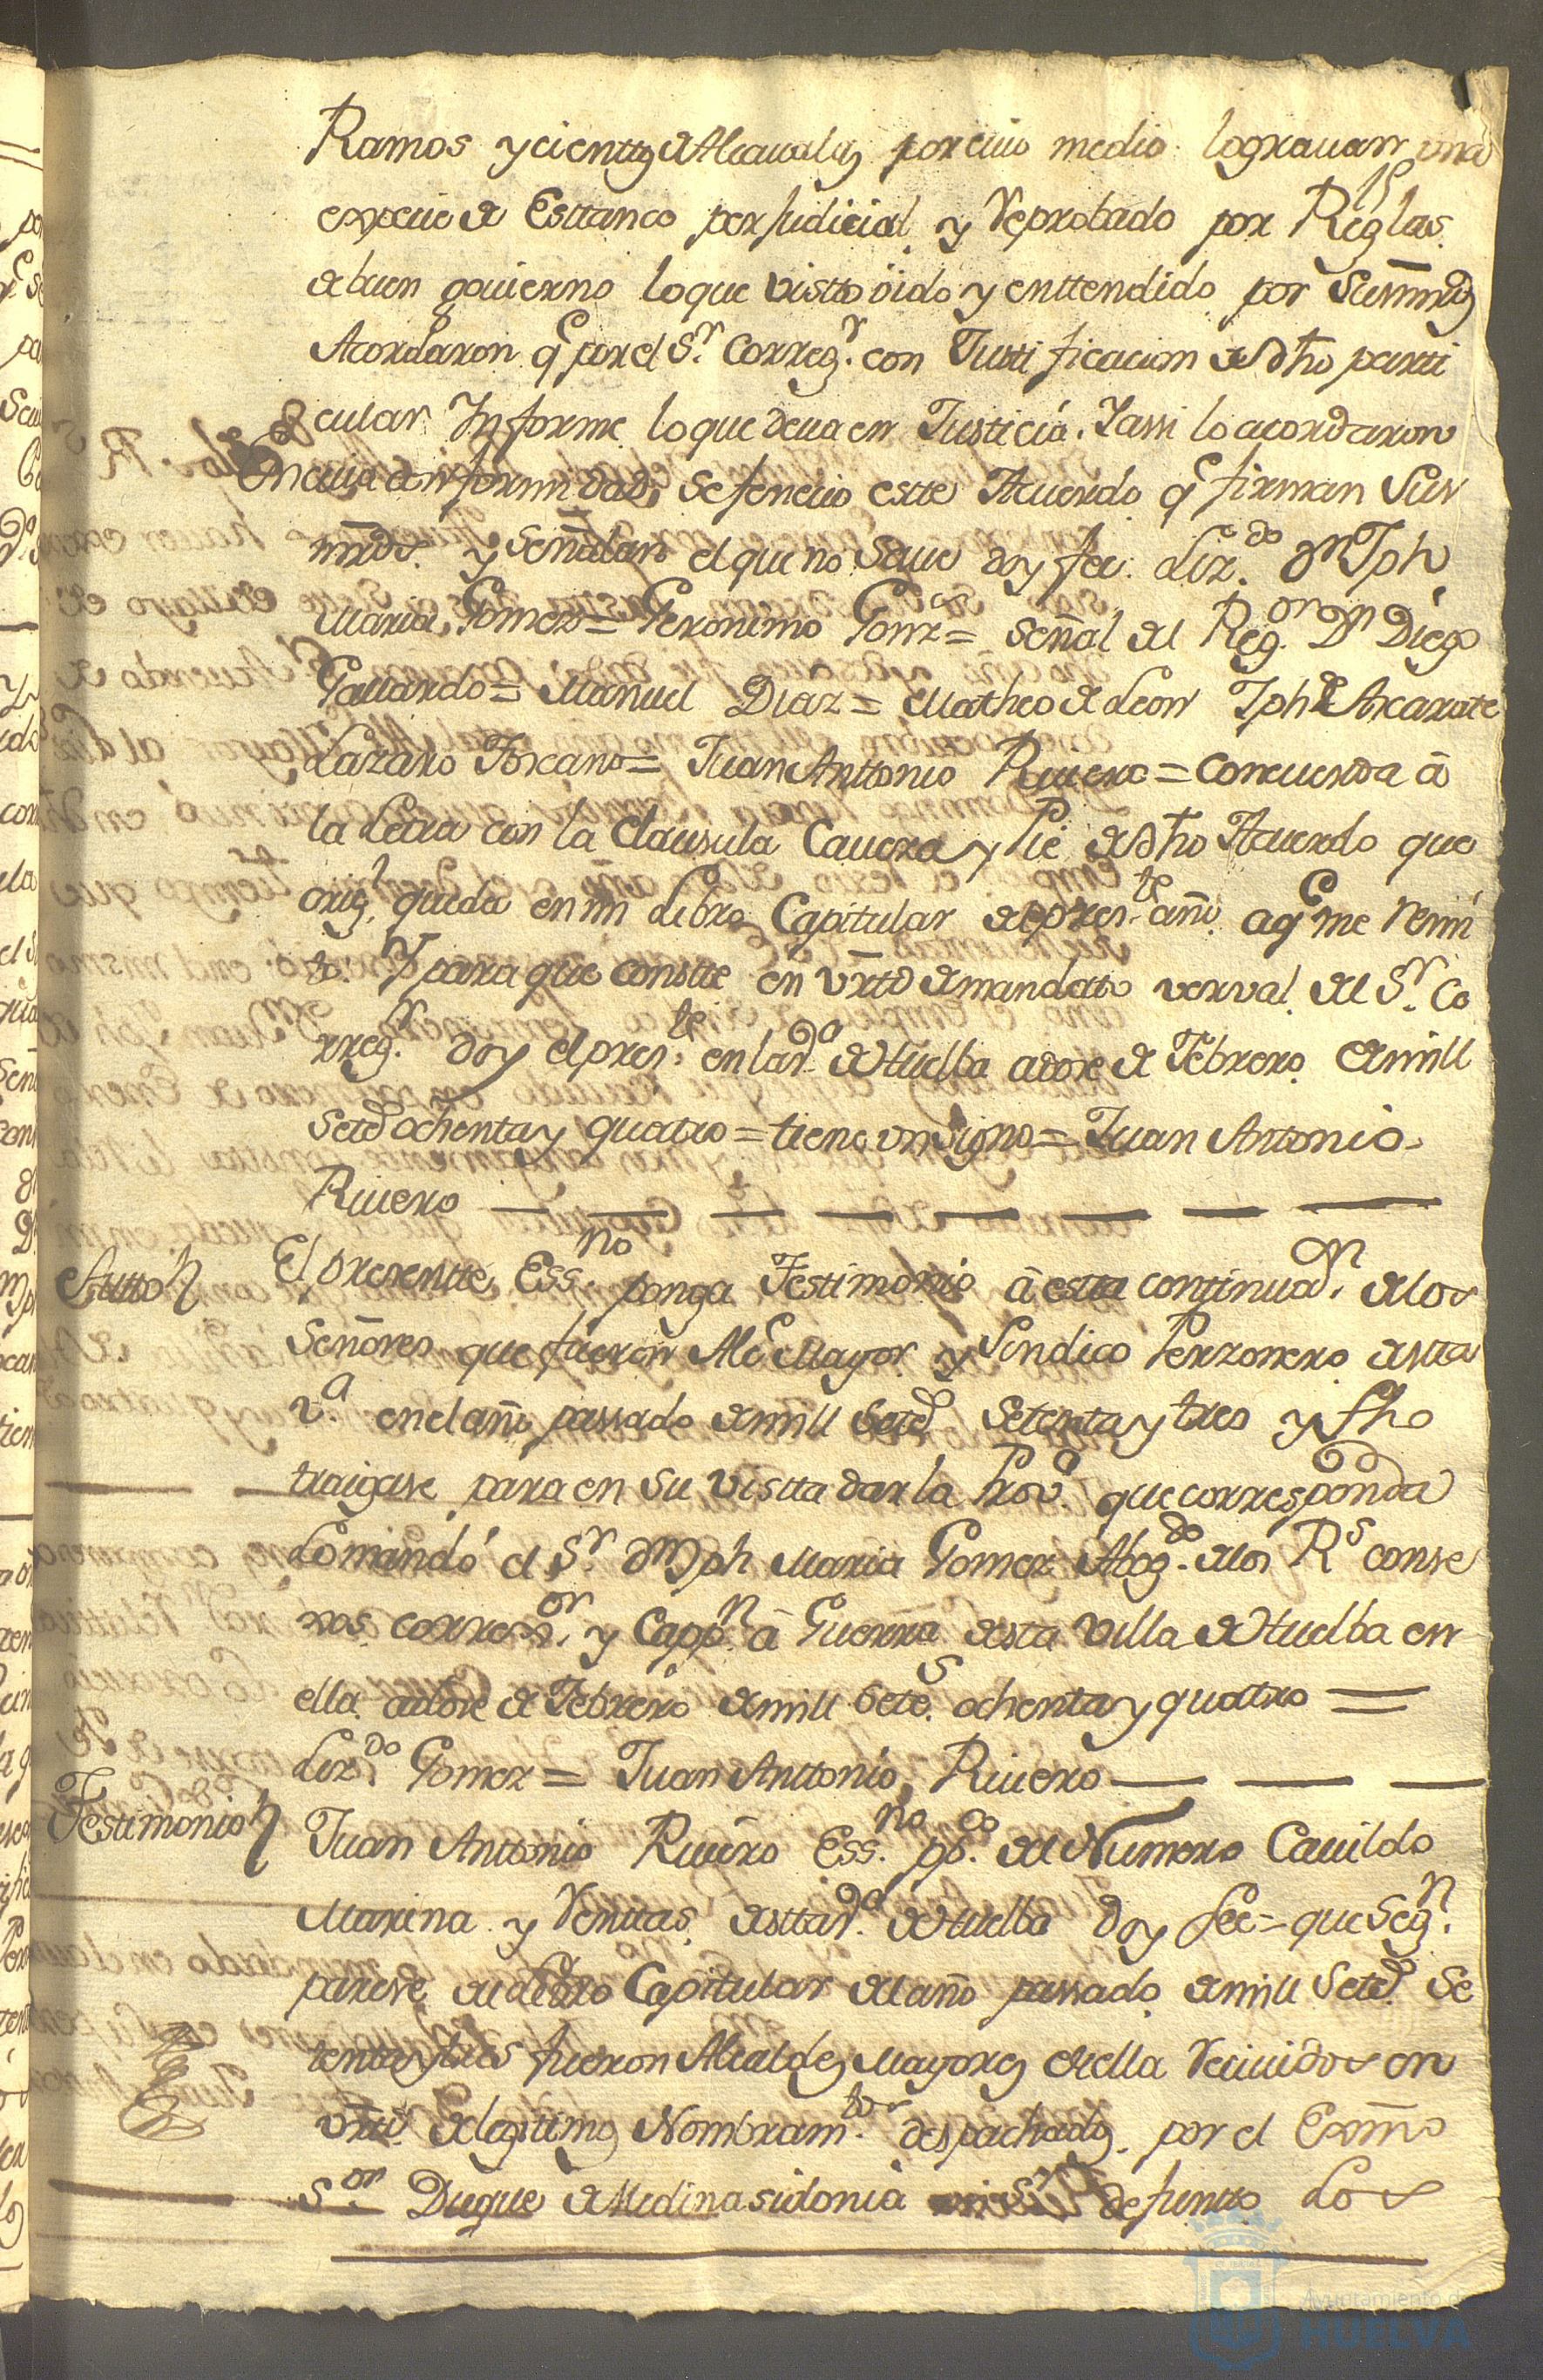 15
Ramos y cienttos de Alcavalas por cuio medio lograuan una
especie de Esttanco perjudicial y reprobado por Reglas
de buen gouierno lo que vistto oido y enttendido por Susmrds
Acordaron q̃ por el Sr. Correg.r con Justificacion de dho parti
cular Informe lo que deua en Justicia. Y assi lo acordaron
en cuia conformidad se fenecio este Acuerdo q̃ firman Sus
mrds. y señalan el que no saue doy fee. Liz.do Dn Jph
Maria Gomez = Geronimo Gonz.es = Señal del Reg.or Dn Diego
Gauardo = Manuel Diaz = Matheo de Leon Jph de Arcarate
Lazaro Forcano = Juan Anttonio Riuero = Concuerda â
la Letra con la Clausula Cauera y Pie de dho Acuerdo que
orig.l queda en mi Libro Capitular del pres.te año aq̃ me remi
to. Y para que constte en virtd de mandato verval del Sr. Co
rreg.r doy el pres.te en la v.a de Huelba a doze de Febrero de mill
seted ochenta y quatro = tiene un signo = Juan Antonio
Riuero
Autto El presentte Ess.no ponga Testimonio â esta continuac.on de los
Señores que fueron Alc.e Mayor y Sindico Perzonero de estta
v.a en el año passado de mill seted setenta y tres y fho
traigase para en su vistta dar la Prov.a que corresponda
Lo mandó el Sr. Dn Jph Maria Gomez Abog.do de los Rs conse
xos correg.or y Capp.n â Guerra de esta Villa de Huelba en
ella a doze de Febrero de mill sete.s ochenta y quatro =
Liz.do Gomez = Juan Anttonio Riuero
Testimonio Juan Anttonio Riuero Ess.no pp.co del Numero Cauildo
Marina y Renttas de estta v.a de Huelba doy fee = que seg.n
parese del Libro Capitular del año passado de mill seted se
tenta y tres fueron Alcaldes Mayores de ella reciuidos en
virtd. de legitimos Nombram.tos despachados por el Exmo
S.or Duque de Medinasidonia mi Sr. defunto Los
Ayuntamiento de
HUELVA